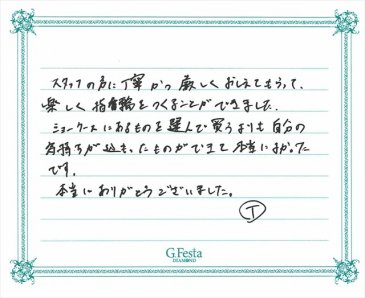 スタッフの方に丁寧かつ厳しくおしえてもらって、
楽しく指輪をつくることができました。
ショーケースにあるものを選んで買うよりも自分の
気持ちが込もったものができて本当によかった
です。
本当にありがとうございました。
T
G.Festa
DIAMOND